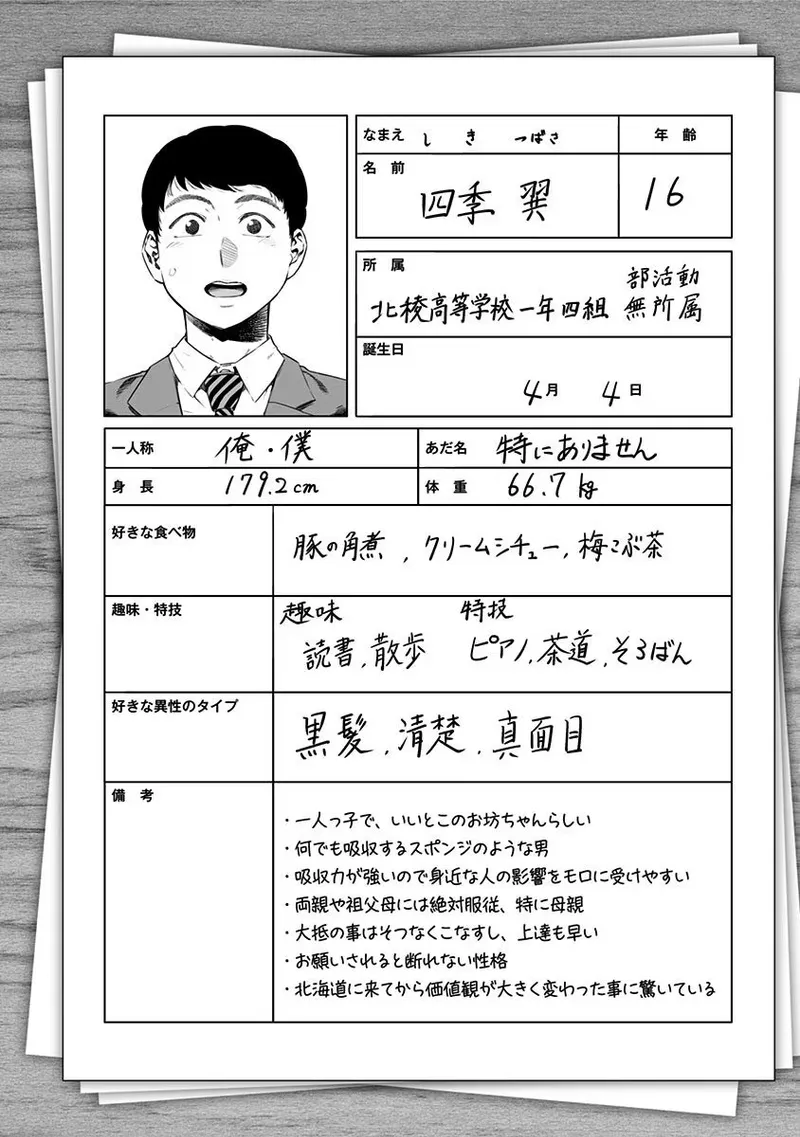 なまえ しき つばさ
年 齢
名 前 四季 翼
16
所 属
部活動
北稜高等学校一年四組 無所属
誕生日
4月 4日
一人称 俺・僕
あだ名 特にありません
身 長 179.2cm
体 重 66.7kg
好きな食べ物 豚の角煮,クリームシチュー,梅こぶ茶
趣味・特技
趣味 特技
読書,散歩 ピアノ,茶道,そろばん
好きな異性のタイプ 黒髪,清楚,真面目
備 考
・一人っ子で、いいとこのお坊ちゃんらしい
・何でも吸収するスポンジのような男
・吸収力が強いので身近な人の影響をモロに受けやすい
・両親や祖父母には絶対服従、特に母親
・大抵の事はそつなくこなすし、上達も早い
・お願いされると断れない性格
・北海道に来てから価値観が大きく変わった事に驚いている